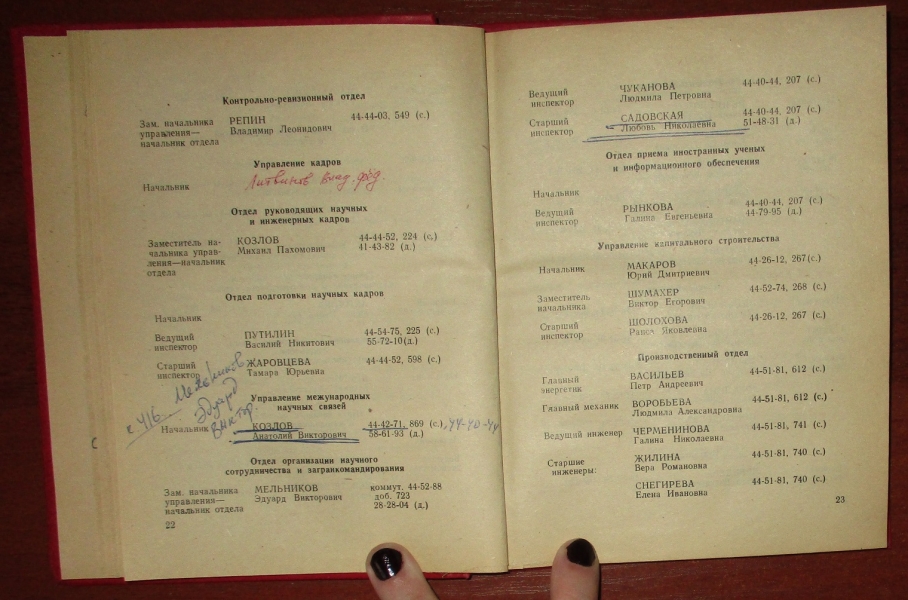 Контрольно-ревизионный отдел
Зам. начальника РЕПИН 44-44-03, 549 (с.)
управления— Владимир Леонидович
начальник отдела
Управление кадров
Начальник Литвинов Влад. Фёд.
Отдел руководящих научных
и инженерных кадров
Заместитель на- КОЗЛОВ 44-44-52, 224 (с.)
чальника управ- Михаил Пахомович 41-43-82 (д.)
ления—начальник
отдела
Отдел подготовки научных кадров
Начальник
Ведущий ПУТИЛИН 44-54-75, 225 (с.)
инспектор Василий Никитович 55-72-10(д.)
Старший ЖАРОВЦЕВА 44-44-52, 598 (с.)
инспектор Тамара Юрьевна
Мельников
Эдуард
Виктор.
к. 416
Управление международных
научных связей
Начальник КОЗЛОВ 44-42-71, 869 (с.), 44-40-44
Анатолий Викторович 58-61-93 (д.)
с
Отдел организации научного
сотрудничества и загранкомандирования
Зам. начальника МЕЛЬНИКОВ коммут. 44-52-88
управления— Эдуард Викторович доб. 723
начальник отдела 28-28-04 (д.)
22
Ведущий ЧУКАНОВА 44-40-44, 207 (с.)
инспектор Людмила Петровна
Старший САДОВСКАЯ 44-40-44, 207 (с.)
инспектор Любовь Николаевна 51-48-31 (д.)
Отдел приема иностранных ученых
и информационного обеспечения
Начальник
Ведущий РЫНКОВА 44-40-44, 207 (с.)
инспектор Галина Евгеньевна 44-79-95 (д.)
Управление капитального строительства
Начальник МАКАРОВ 44-26-12, 267(с.)
Юрий Дмитриевич
Заместитель ШУМАХЕР 44-52-74, 268 (с.)
начальника Виктор Егорович
Старший ШОЛОХОВА 44-26-12, 267 (с.)
инспектор Раиса Яковлевна
Производственный отдел
Главный ВАСИЛЬЕВ 44-51-81, 612 (с.)
энергетик Петр Андреевич
Главный механик ВОРОБЬЕВА 44-51-81, 612 (с.)
Людмила Александровна
Ведущий инженер ЧЕРМЕНИНОВА 44-51-81, 741 (с.)
Галина Николаевна
Старшие ЖИЛИНА 44-51-81, 740 (с.)
инженеры: Вера Романовна
СНЕГИРЕВА 44-51-81, 740 (с.)
Елена Ивановна
23